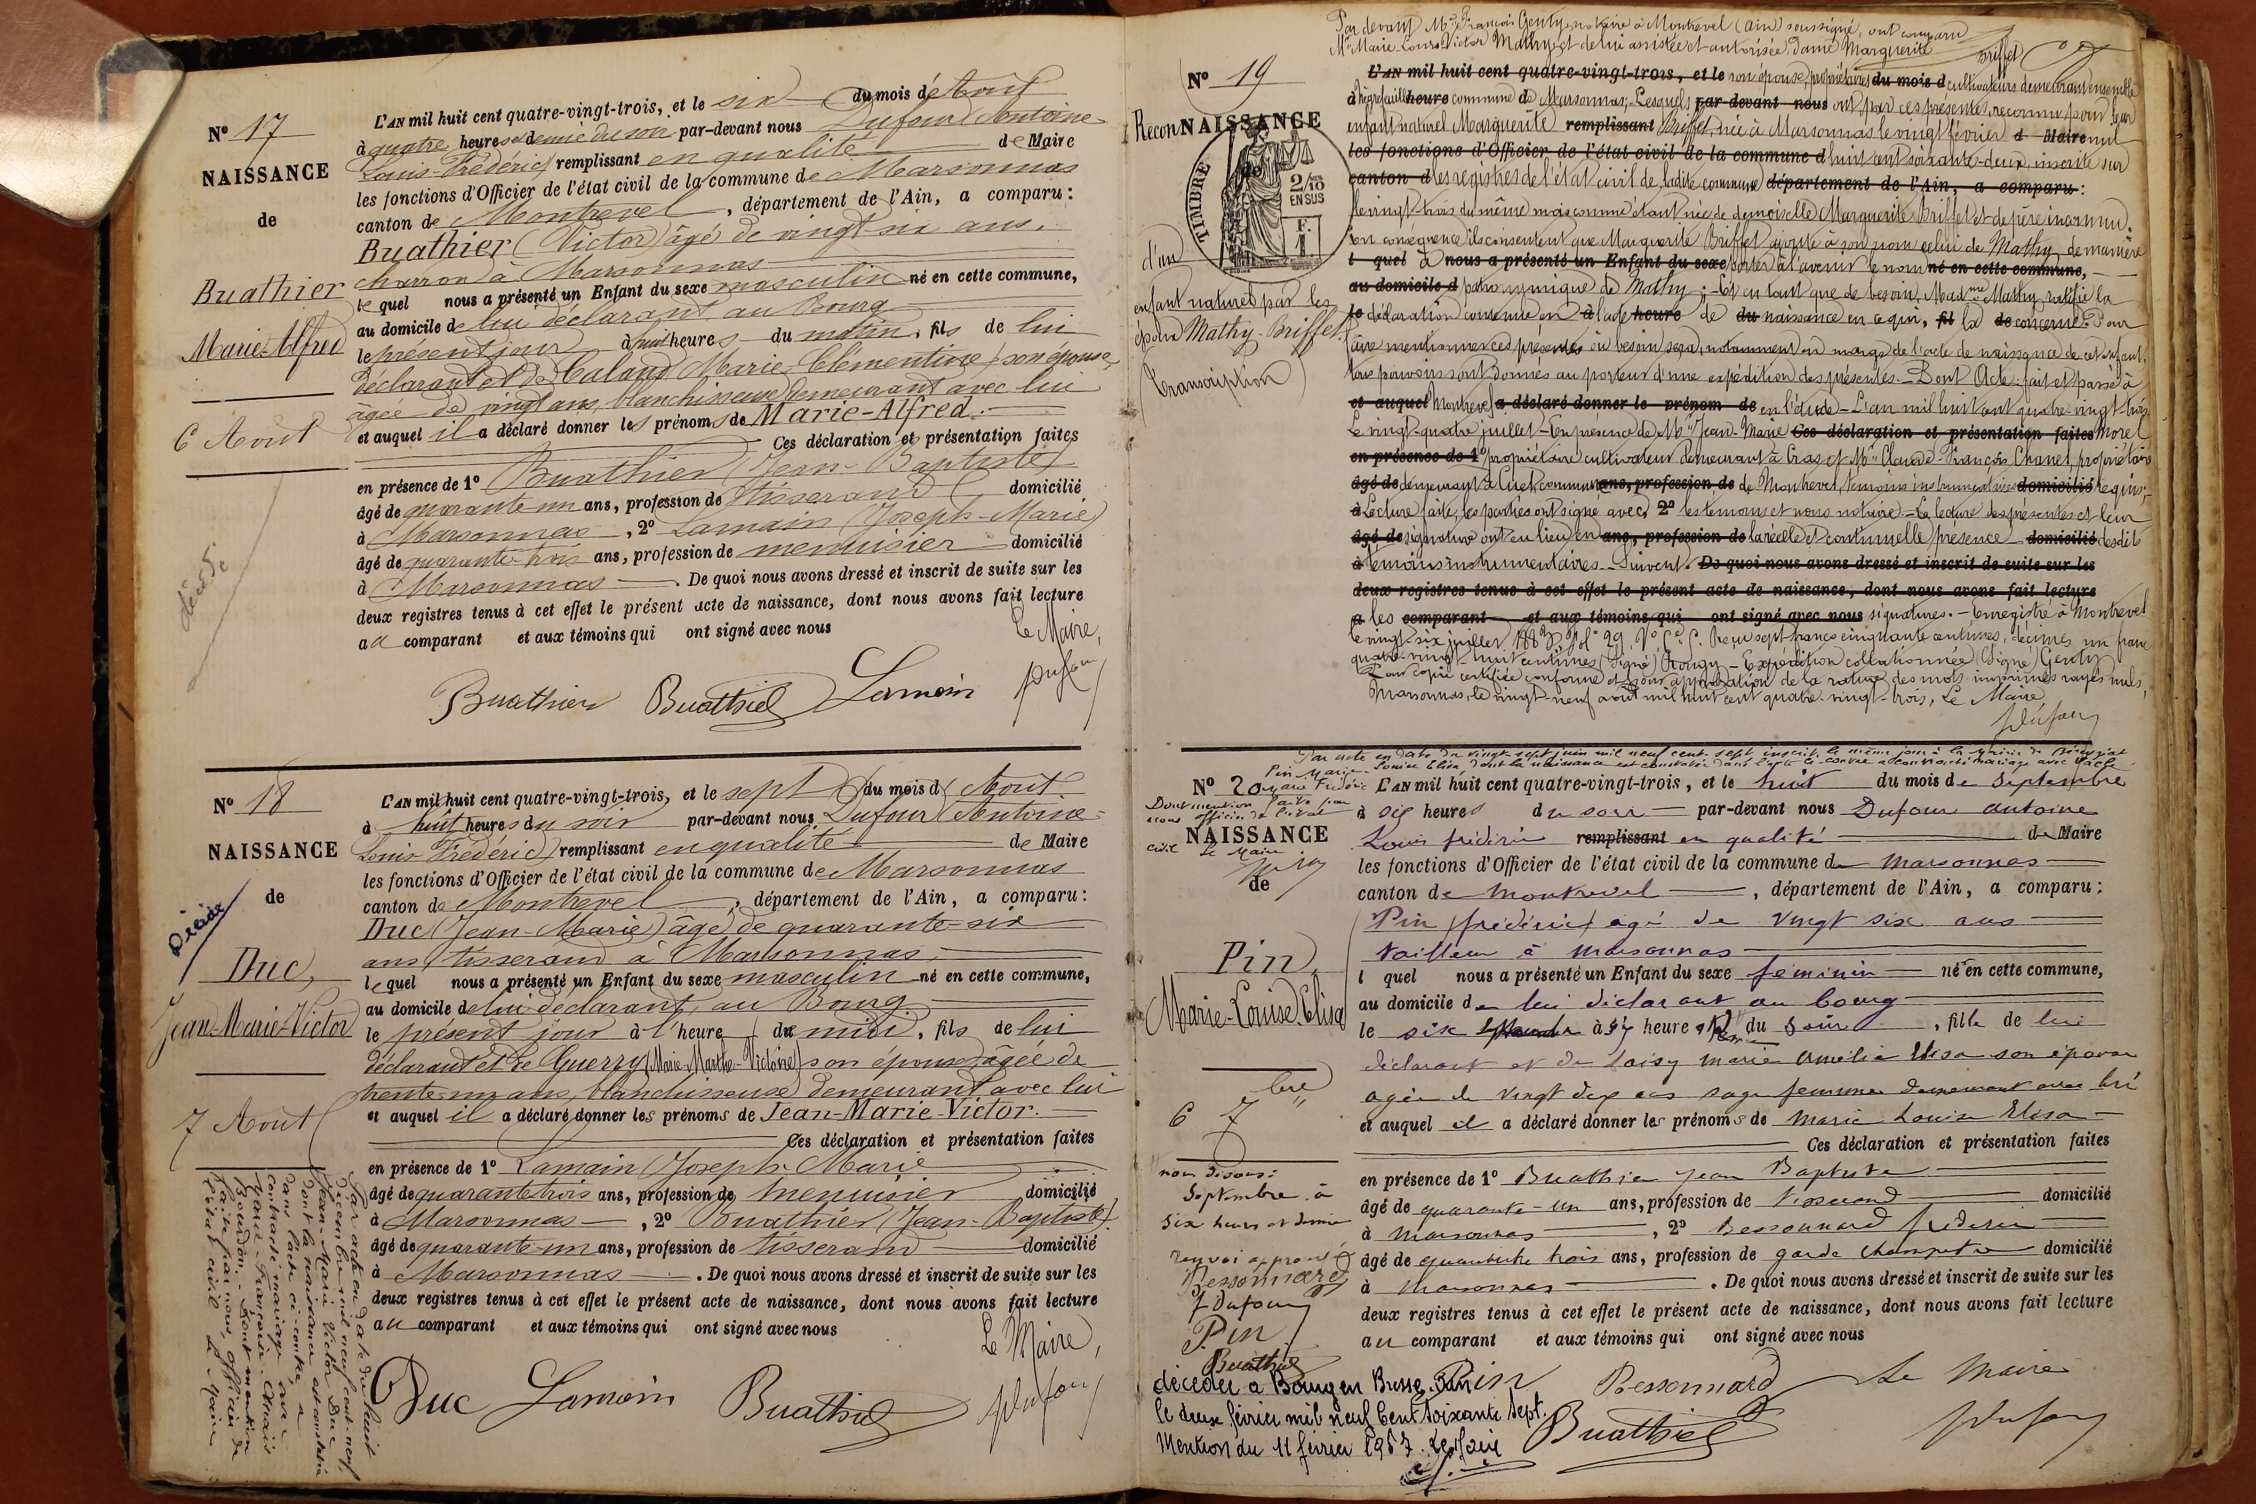 N° 17
NAISSANCE
de
Buathier
Marie-Alfred
6 Aout
décédé
L'AN mil huit cent quatre-vingt-trois, et le six du mois d'Aout
à quatre heures et demie du soir par-devant nous Dufour (Antoine-
Louis-Frédéric) remplissant en qualité de Maire
les fonctions d'Officier de l'état civil de la commune de Marsonnas
canton de Montrevel, département de l'Ain, a comparu :
Buathier (Victor) âgé de vingt six ans,
charron à Marsonnas
lequel nous a présenté un Enfant du sexe masculin né en cette commune,
au domicile de lui déclarant au Bourg
le présent jour à huit heures du matin, fils de lui
déclarant et de Caland (Marie-Clémentine) son épouse,
âgée de vingt ans, blanchisseuse demeurant avec lui
et auquel il a déclaré donner les prénoms de Marie-Alfred.
Ces déclaration et présentation faites
en présence de 1° Buathier (Jean-Baptiste)
âgé de quarante un ans, profession de tisserand domicilié
à Marsonnas, 2° Lamain (Joseph-Marie)
âgé de quarante-trois ans, profession de menuisier domicilié
à Marsonnas. De quoi nous avons dressé et inscrit de suite sur les
deux registres tenus à cet effet le présent acte de naissance, dont nous avons fait lecture
au comparant et aux témoins qui ont signé avec nous
Le Maire,
Buathier Buathier Lamain Dufour
N° 18
NAISSANCE
de
Décédé
Duc,
Jean-Marie-Victor
7 Aout
L'AN mil huit cent quatre-vingt-trois, et le sept du mois d'Aout
à huit heures du soir par-devant nous Dufour (Antoine-
Louis Frédéric) remplissant en qualité de Maire
les fonctions d'Officier de l'état civil de la commune de Marsonnas
canton de Montrevel, département de l'Ain, a comparu :
Duc (Jean-Marie) âgé de quarante-six
ans, tisserand à Marsonnas,
lequel nous a présenté un Enfant du sexe masculin né en cette commune,
au domicile de lui déclarant, au Bourg
le présent jour à l'heure du midi, fils de lui
déclarant et de Guerry (Marie-Marthe-Victoire) son épouse, âgée de
trente-un ans, blanchisseuse, demeurant avec lui
et auquel il a déclaré donner les prénoms de Jean-Marie-Victor.
Ces déclaration et présentation faites
en présence de 1° Lamain (Joseph-Marie
âgé de quarante trois ans, profession de menuisier domicilié
à Marsonnas, 2° Buathier (Jean-Baptiste)
âgé de quarante-un ans, profession de tisserand domicilié
à Marsonnas. De quoi nous avons dressé et inscrit de suite sur les
deux registres tenus à cet effet le présent acte de naissance, dont nous avons fait lecture
au comparant et aux témoins qui ont signé avec nous
Le Maire,
Duc Lamain Buathier Dufour
Par acte en date du huit
décembre mil neuf cent neuf,
Jean Marie Victor Duc
dont la naissance est constatée
dans l'acte ci-contre, a
contracté mariage avec
Marie Françoise
Bourdon. Dont mention
faite par nous, officier de
l'état civil Le Maire
Par devant Me François Genty, notaire à Montrevel (Ain) soussigné, ont comparu
Mr Marie Louis Victor Mathy et de lui assistée et autorisée, dame Marguerite Briffet
N° 19
Recon NAISSANCE
de
TIMBRE
2/10 EN SUS
F. 1
d'un
enfant naturel par les
époux Mathy-Briffet.
(Transcription)
L'AN mil huit cent quatre-vingt-trois, et le son épouse, propriétaires du mois d cultivateurs demeurant ensemble
à heure commune de Marsonnas; Lesquels par-devant nous ont par ces présentes, reconnu pour leur
enfant naturel Marguerite remplissant Briffet, née à Marsonnas le vingt février d Maire mil
les fonctions d'Officier de l'état civil de la commune d huit cent soixante-deux, inscrite sur
canton d les registres de l'état civil de ladite commune département de l'Ain, a comparu :
le vingt trois du même mois comme étant née de demoiselle Marguerite Briffet et de père inconnu.
en conséquence ils consentent que Marguerite Briffet ajoute à son nom celui de Mathy, de manière
l quel à nous a présenté un Enfant du sexe porter à l'avenir le nom né en cette commune,
au domicile d patronymique de Mathy; Et en tant que de besoin, Madme Mathy ratifie la
le déclaration contenue en à l'acte heure de du naissance en ce qui, fil la de concerne. Pour
faire mentionner ces présentes où besoin sera, notamment en marge de l'acte de naissance de cet enfant,
tous pouvoirs sont donnés au porteur d'une expédition des présentes. Dont Acte: fait et passé à
et auquel Montrevel a déclaré donner le prénom de en l'étude – L'an mil huit cent quatre-vingt-trois
Le vingt quatre juillet – En présence de Mr Jean-Marie Ces déclaration et présentation faites Morel
en présence de 1° propriétaire cultivateur demeurant à Cras et Mr Claude-François Chanel, propriétaire
âgé de demeurant à Cuet, commune ans, profession de de Montrevel, témoins instrumentaires domicilié requis;
à Lecture faite, les parties ont signé avec 2° les témoins et nous notaire – La lecture des présentes et leur
âgé de signature ont eu lieu en ans, profession de la réelle et continuelle présence domicilié desdits
à témoins instrumentaires. Suivent. De quoi nous avons dressé et inscrit de suite sur les
deux registres tenus à cet effet le présent acte de naissance, dont nous avons fait lecture
a les comparant et aux témoins qui ont signé avec nous signatures. – Enregistré à Montrevel
le vingt-six juillet 1883, fo 29, Vo C. 5. Reçu sept francs cinquante centimes, décimes un franc
quatre-vingt-huit centimes (Signé) Rougy – Expédition collationnée (Signé) Genty
Pour copie certifiée conforme et pour approbation de la rature des mots imprimés rayés nuls,
Marsonnas, le vingt-neuf août mil huit cent quatre-vingt-trois, Le Maire,
Dufour
Par acte en date du vingt-sept juin mil neuf cent sept inscrit le même jour à la mairie de
Pin Marie-Louise Elisa, dont la naissance est constatée dans l'acte ci-contre a contracté mariage avec
Dont mention faite par
nous officier de l'état
civil Le Maire
N° 20
NAISSANCE
de
Pin,
Marie-Louise-Elisa
6 7bre
nous disons:
Septembre à
six heures et demie
renvoi approuvé
Bessonnard
Dufour
Pin
Buathier
L'AN mil huit cent quatre-vingt-trois, et le huit du mois de Septembre
à six heures du soir par-devant nous Dufour antoine
Louis frédéric remplissant en qualité de Maire
les fonctions d'Officier de l'état civil de la commune de Marsonnas
canton de Montrevel, département de l'Ain, a comparu :
Pin (frédéric) agé de vingt six ans
tailleur à Marsonnas
l quel nous a présenté un Enfant du sexe féminin né en cette commune,
au domicile de lui déclarant au bourg
le six à heures du soir, fille de lui
déclarant et de Loisy marie Amélie Elisa son épouse
agée de vingt six ans sage femme demeurant avec lui
et auquel il a déclaré donner les prénoms de Marie Louise Elisa
Ces déclaration et présentation faites
en présence de 1° Buathier Jean Baptiste
âgé de quarante-un ans, profession de tisserand domicilié
à Marsonnas, 2° Bessonnard frédéric
âgé de quarante trois ans, profession de garde champetre domicilié
à Marsonnas. De quoi nous avons dressé et inscrit de suite sur les
deux registres tenus à cet effet le présent acte de naissance, dont nous avons fait lecture
au comparant et aux témoins qui ont signé avec nous
Pin Bessonnard Le Maire
Buathier Dufour
décédée à Bourg en Bresse. Ain
le deux février mil neuf Cent Soixante Sept.
Mention du 11 février 1967. Le Maire